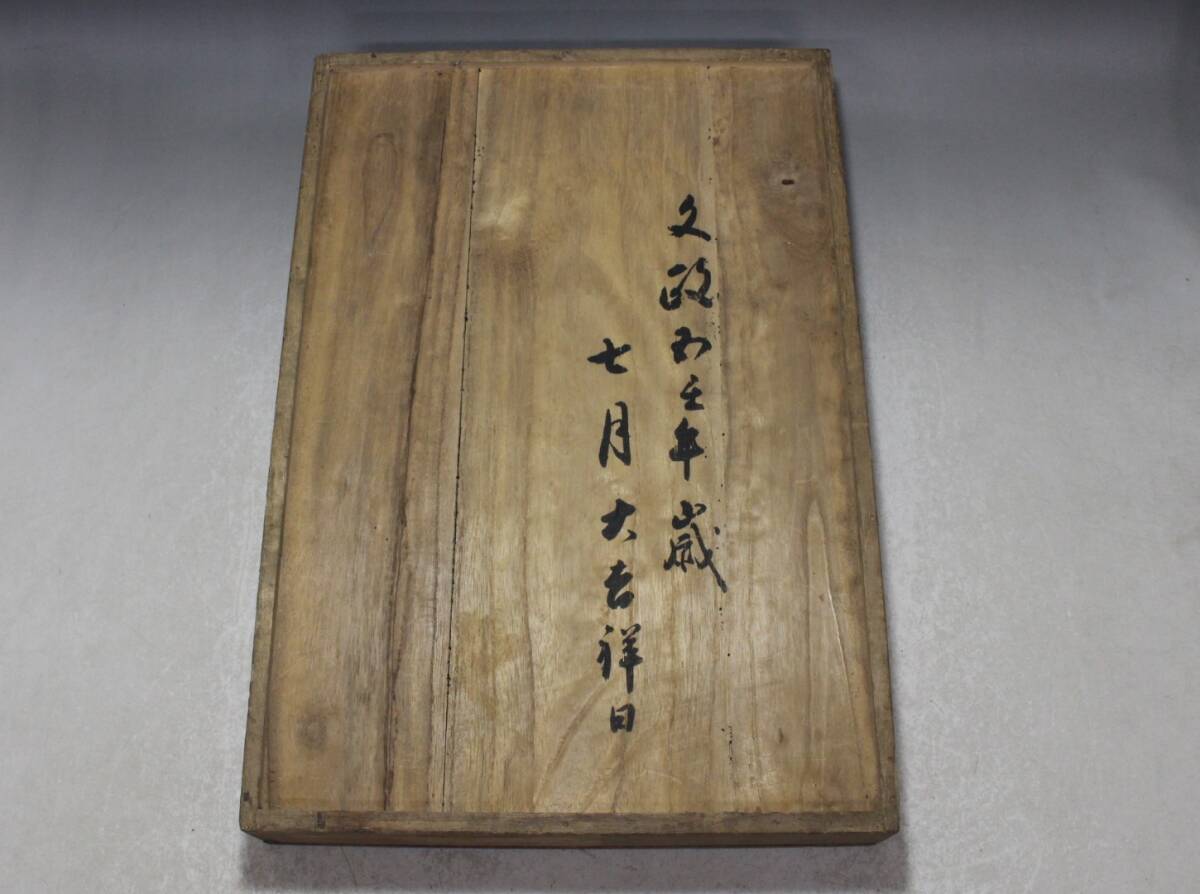 文政五壬年歳
七月大吉祥日